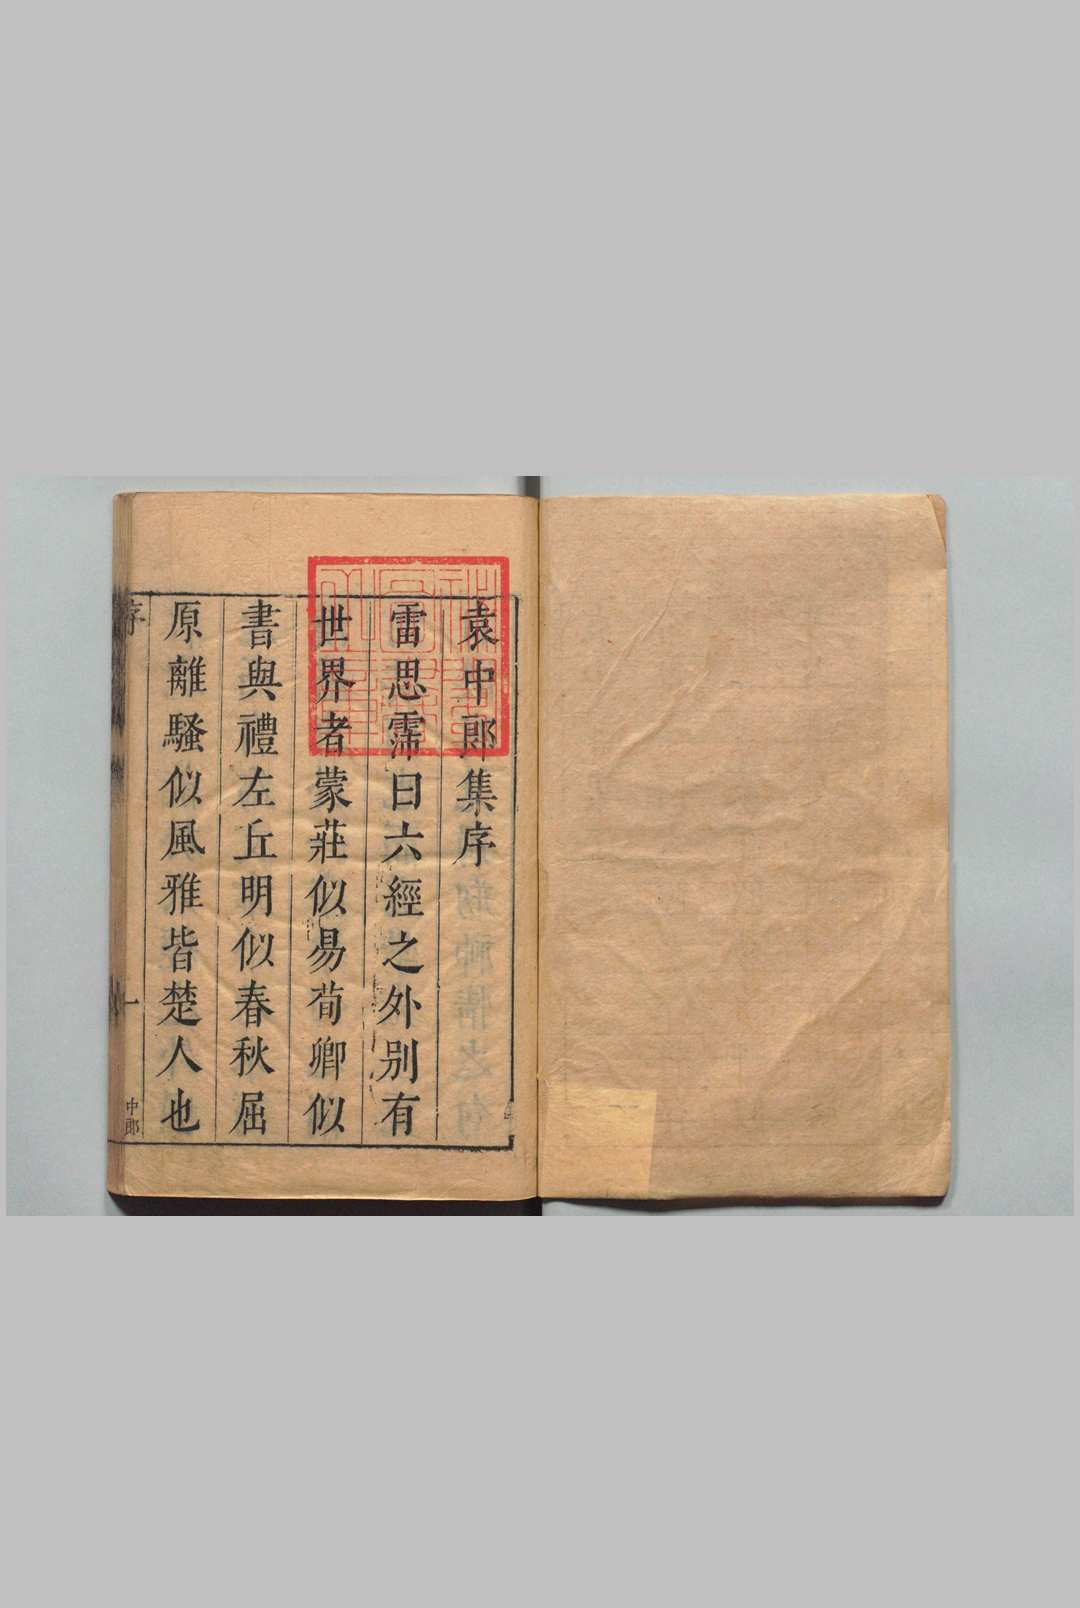 袁中郎集序
雷思霈曰六經之外別有
世界者蒙莊似易荀卿似
書與禮左丘明似春秋屈
原離騷似風雅皆楚人也
序
一
中郎